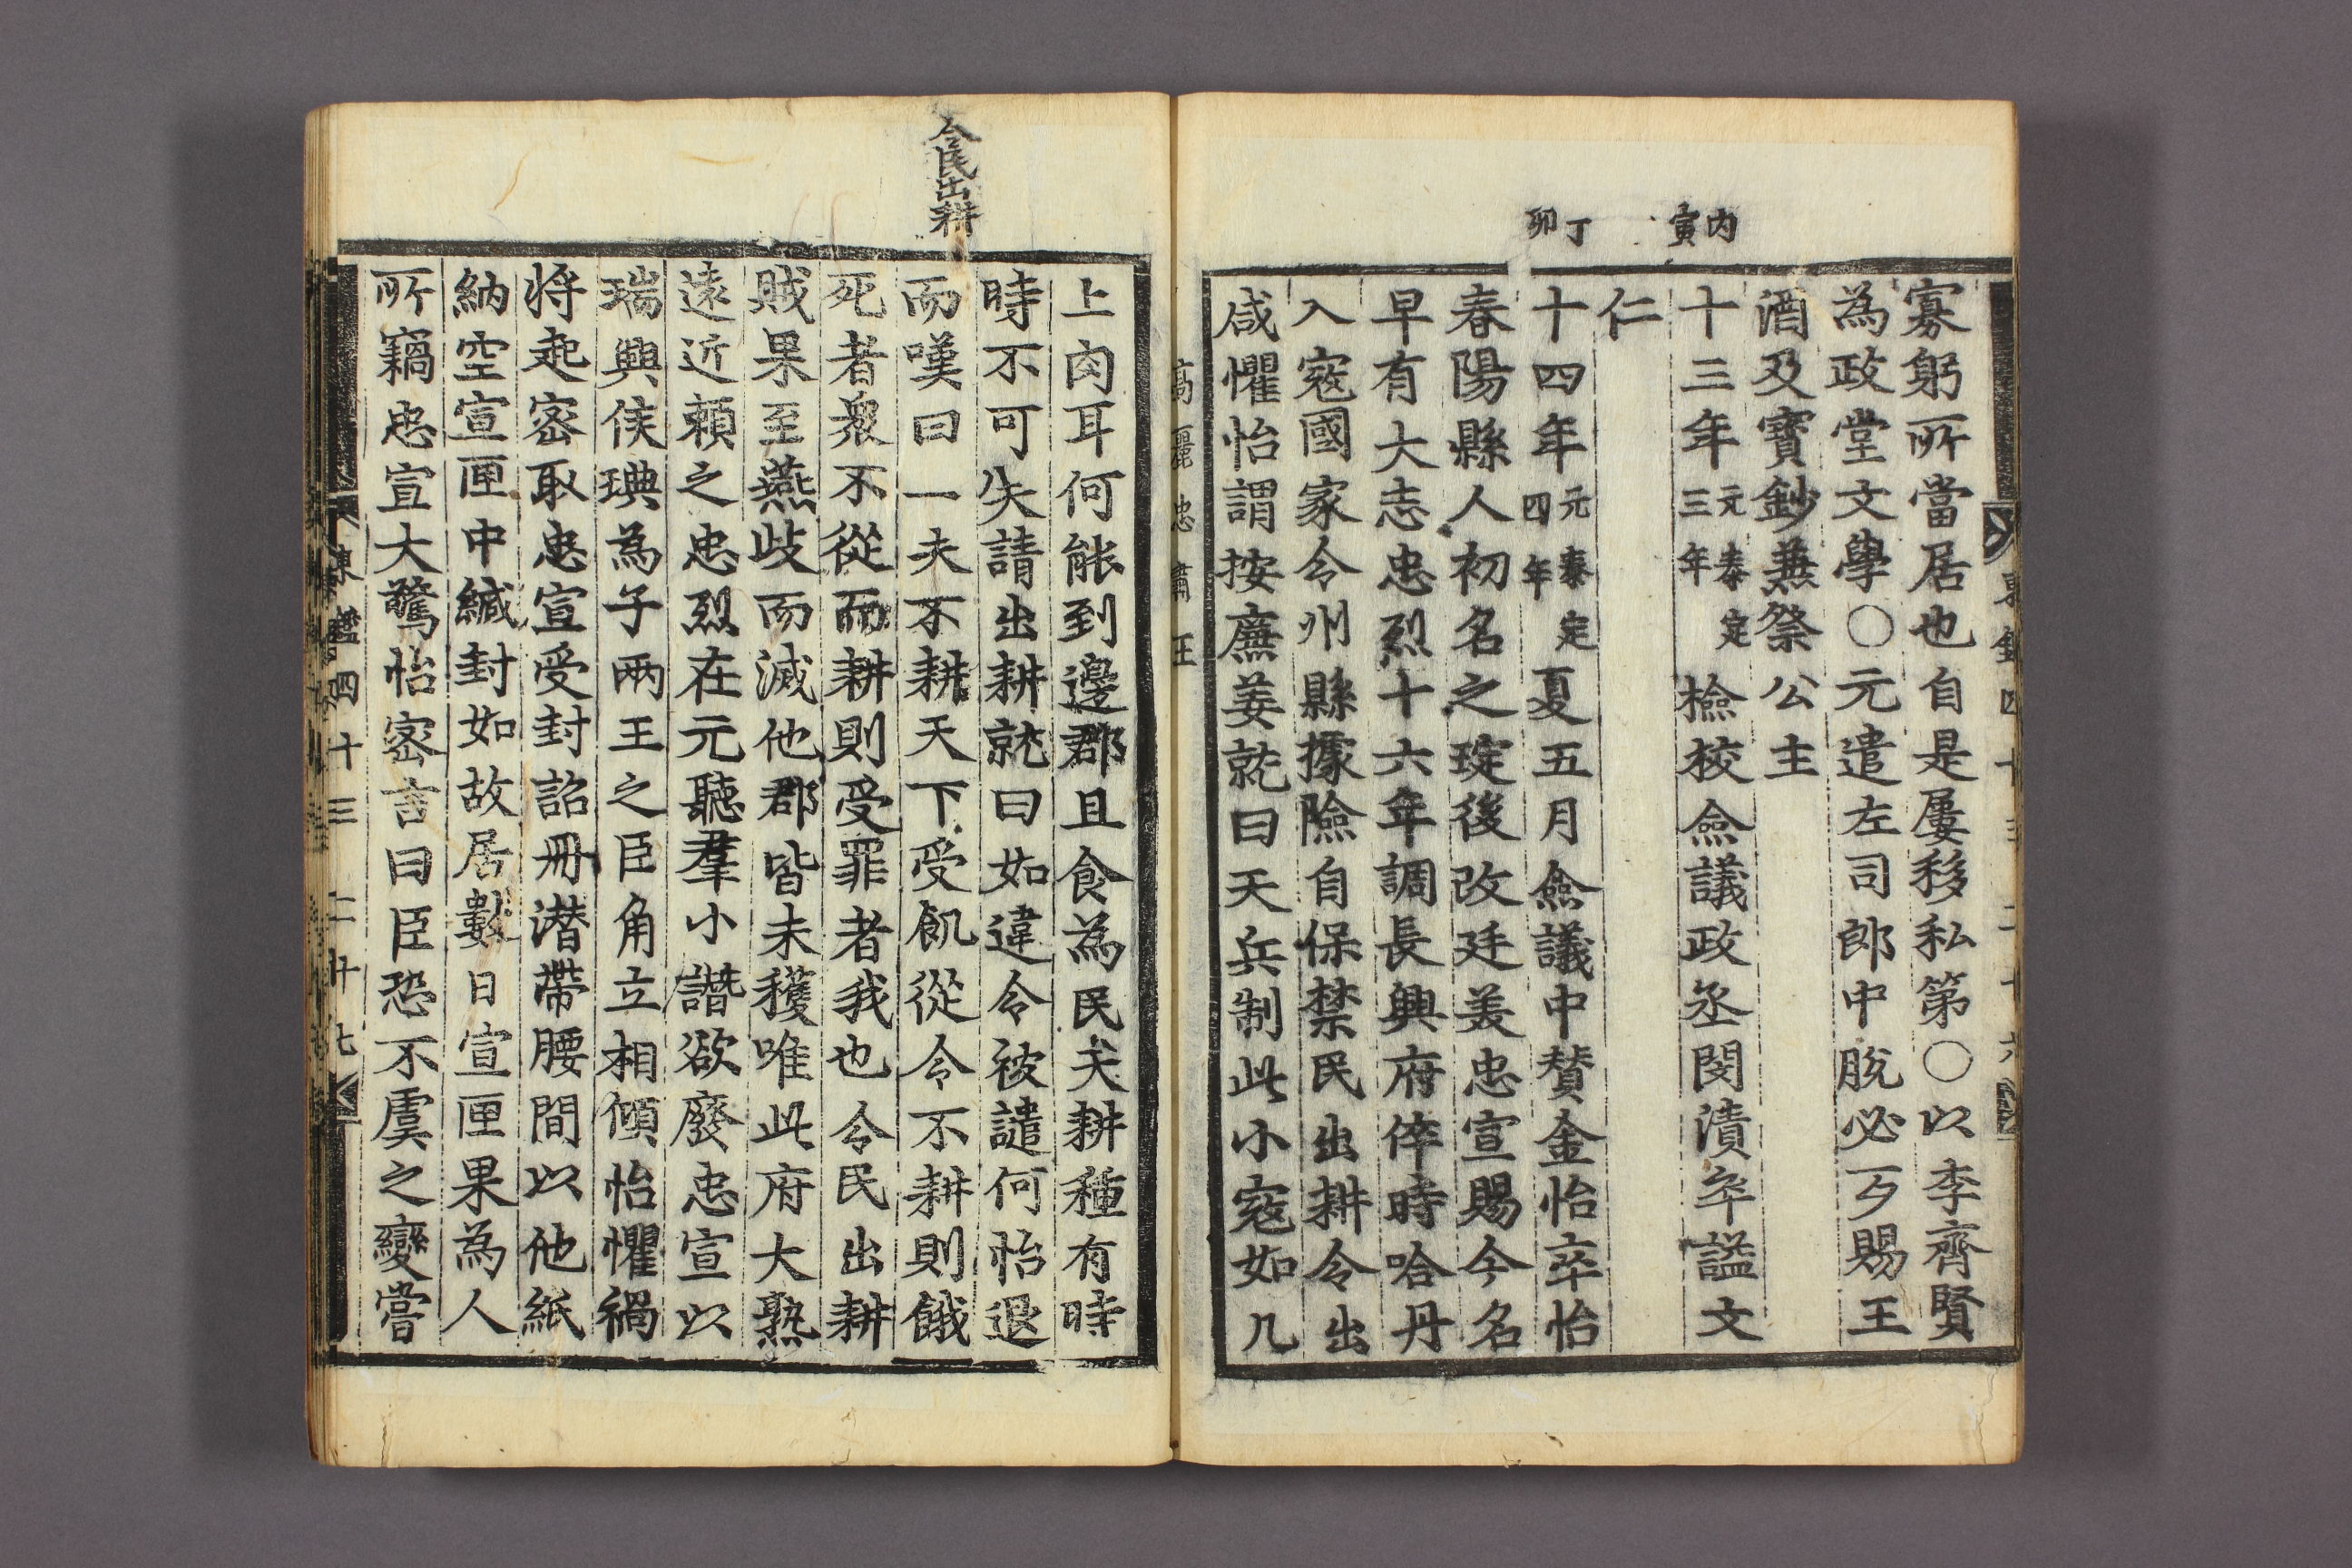 丙寅
丁卯
寡躬所當居也自是屢移私第〇以李齊賢
為政堂文學〇元遣左司郎中脫必歹賜王
酒及寶鈔兼祭公主
十三年元泰定三年檢校僉議政丞閔漬卒謚文
仁
十四年元泰定四年夏五月僉議中賛金怡卒怡
春陽縣人初名之琔後改廷美忠宣賜今名
早有大志忠烈十六年調長興府倅時哈丹
入寇國家令州縣據險自保禁民出耕令出
咸懼怡謂按廉姜就曰天兵制此小寇如几
高麗忠肅王
令民出耕
上肉耳何能到邊郡且食為民天耕種有時
時不可失請出耕就曰如違令被譴何怡退
而嘆曰一夫不耕天下受飢從令不耕則餓
死者衆不從而耕則受罪者我也令民出耕
賊果至燕歧而滅他郡皆未穫唯此府大熟
遠近頼之忠烈在元聽羣小譖欲廢忠宣以
瑞興侯琠為子兩王之臣角立相傾怡懼禍
将起密取忠宣受封詔冊潜帶腰間以他紙
納空宣匣中緘封如故居數日宣匣果為人
所竊忠宣大驚怡密言曰臣恐不虞之變嘗
東鑑四十三 二十七